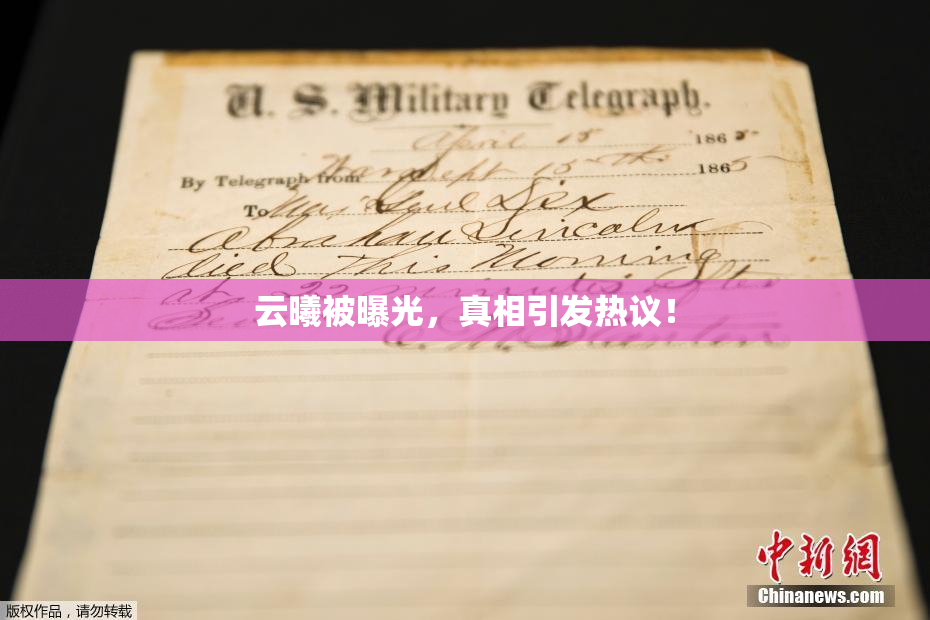 U. S. Military Telegraph.
April 15 1865
By Telegraph from War Dept 15th 1865
To Maj Genl Dix
Abraham Lincoln
died This Morning
at 22 minutes after
云曦被曝光，真相引发热议！
Stanton
中新网
Chinanews.com
版权作品，请勿转载